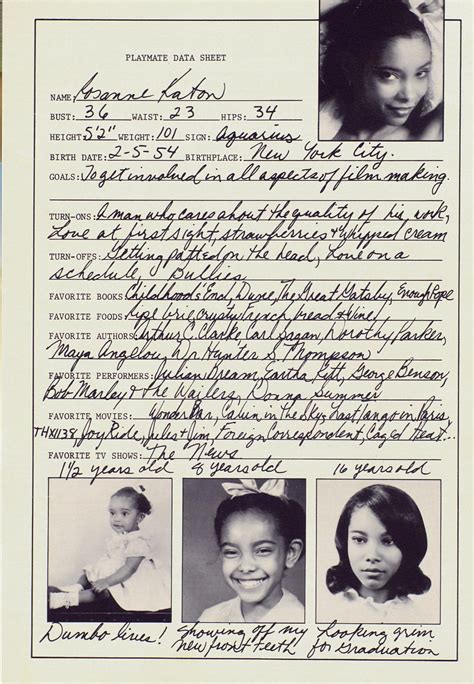 PLAYMATE DATA SHEET
NAME: Rosanne Katon
BUST: 36 WAIST: 23 HIPS: 34
HEIGHT: 5'2" WEIGHT: 101 SIGN: Aquarius
BIRTH DATE: 2-5-54 BIRTHPLACE: New York City.
GOALS: To get involved in all aspects of film making.
TURN-ONS: A man who cares about the quality of his work,
Love at first sight, strawberries & whipped cream
TURN-OFFS: Getting patted on the head, Love on a
schedule, Bullies
FAVORITE BOOKS: Childhood's End, Dune, The Great Gatsby, Enough Rope
FAVORITE FOODS: Ripe brie, crusty french bread & wine!
FAVORITE AUTHORS: Arthur C. Clarke, Carl Sagan, Dorothy Parker,
Maya Angelou, Hunter S. Thompson
FAVORITE PERFORMERS: Julian Dream, Eartha Kitt, George Benson,
Bob Marley & the Wailers, Donna Summer
FAVORITE MOVIES: Wonder Bar, Cabin in the Sky, Last Tango in Paris,
THX1138, Joy Ride, Jules & Jim, Foreign Correspondent, Caged Heat...
FAVORITE TV SHOWS: The News
1 1/2 years old 8 years old 16 years old
Dumbo lives! Showing off my new front teeth! Looking grim for Graduation